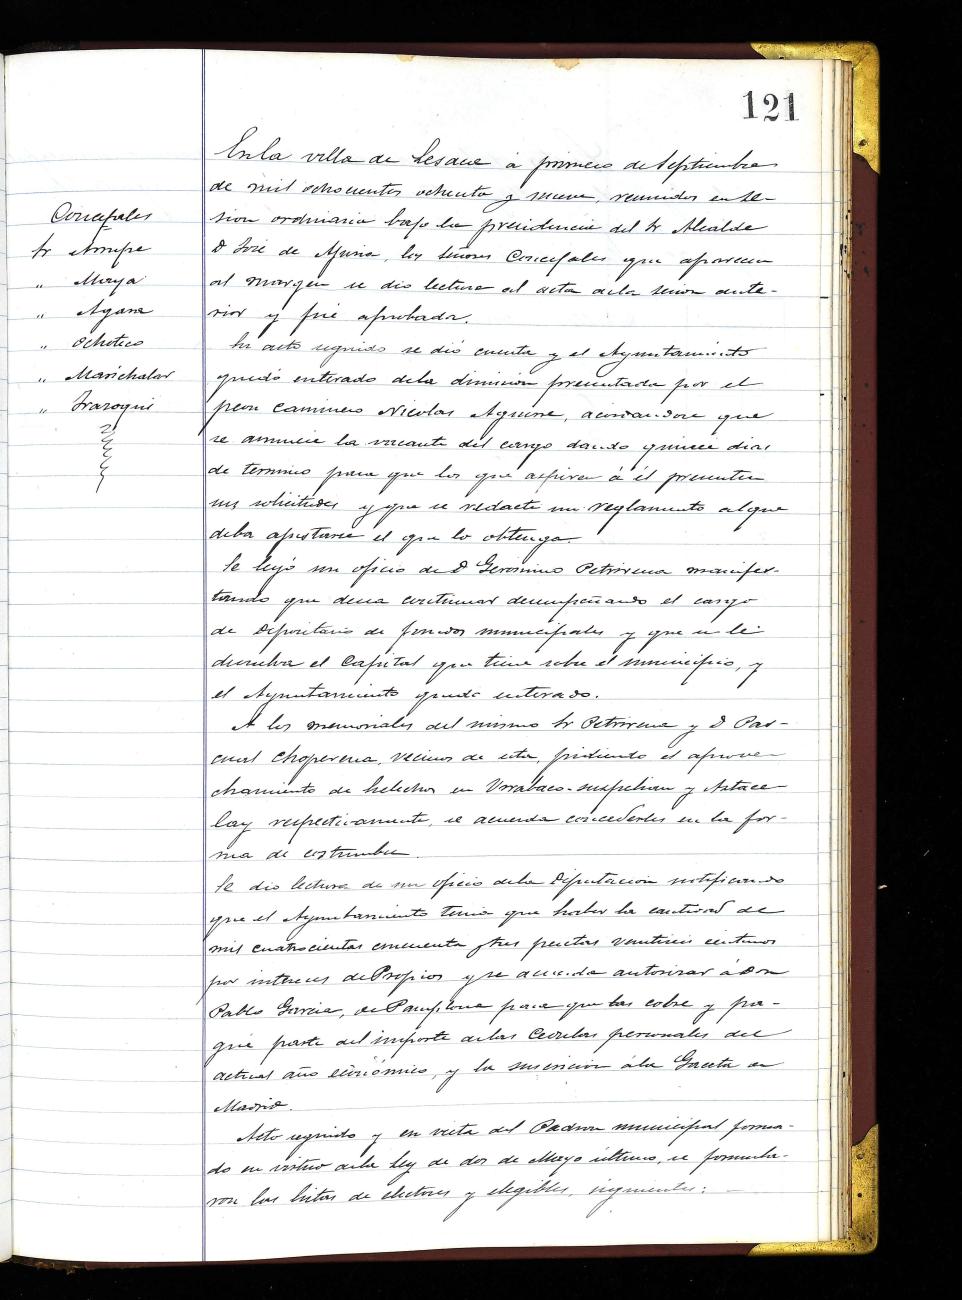 121
Concejales
Sr Arrupe
" Maya
" Ayarra
" Ochoteco
" Marichalar
" Irazoqui
En la villa de Lesaca á primero de Septiembre
de mil ochocientos ochenta y nueve, reunidos en se-
sion ordinaria bajo la presidencia del Sr Alcalde
D José de los Señores Concejales que aparecen
al margen se dio lectura al acta de la sesion ante-
rior y fué aprobada.
En acto seguido se dió cuenta y el Ayuntamiento
quedó enterado de la dimision presentada por el
peon caminero Nicolas Aguirre, acordandose que
se anuncie la vacante del cargo dando quince dias
de termino para que los que aspiren á él presenten
sus solicitudes y que se redacte un reglamento al que
deba ajustarse el que lo obtenga.
Se leyó un oficio de D Geronimo Petrirena manifes-
tando que desea continuar desempeñando el cargo
de Depositario de fondos municipales y que se le
devuelva el Capital que tiene sobre el municipio, y
el Ayuntamiento quedó enterado.
A los memoriales del mismo Sr Petrirena y D Pas-
cual Choperena, vecinos de esta, pidiendo el aprove-
chamiento de helechos en y
respectivamente, se acuerda concederles en la for-
ma de costumbre.
Se dio lectura de un oficio de la Diputacion notificando
que el Ayuntamiento tenia que haber la cantidad de
mil cuatrocientas cincuenta y tres pesetas veintiseis centimos
por intereses de Propios y se acuerda autorizar á Don
Pablo Garcia, de Pamplona para que las cobre y pa-
gue parte del importe de las Cedulas personales del
actual año económico, y la suscricion á la Gaceta de
Madrid.
Acto seguido y en vista del Padron municipal forma-
do en virtud de la Ley de dos de Mayo último, se formula-
ron las listas de electores y elegibles, siguientes: —